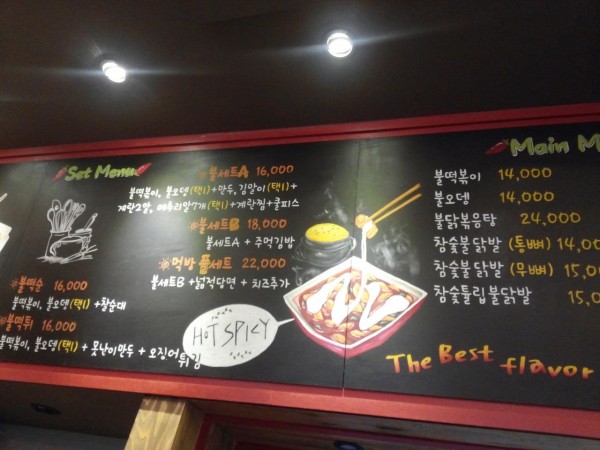 Set Menu
불세트A 16,000
불떡볶이, 불오뎅(택1)+만두, 김말이(택1)+
계란2알, 메추리알7개(택1)+계란찜+쿨피스
불세트B 18,000
불세트A + 주먹김밥
먹방 풀세트 22,000
불세트B +넓적당면 + 치즈추가
불떡순 16,000
불떡볶이, 불오뎅(택1)+찰순대
불떡튀 16,000
불떡볶이, 불오뎅(택1) + 못난이만두 + 오징어튀김
HOT SPICY
Main M
불떡볶이 14,000
불오뎅 14,000
불닭볶음탕 24,000
참숯불닭발 (통뼈) 14,0
참숯불닭발 (무뼈) 15,0
참숯튤립불닭발 15,0
The Best flavor